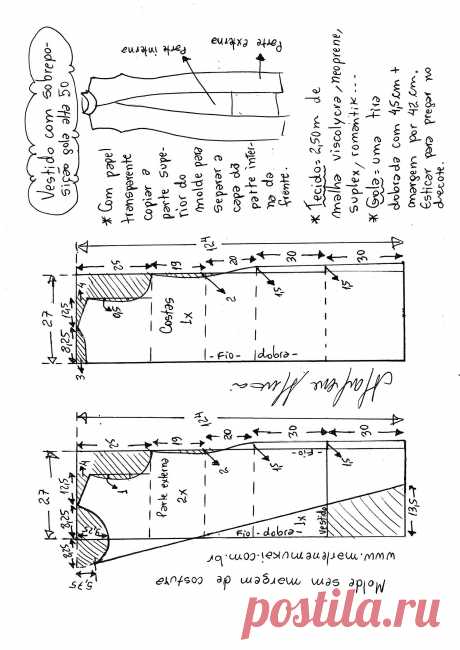 Vestido com sobrepo-
sição gola alta 50
Parte interna
Parte externa
* Com papel
transparente
copiar a
parte supe-
rior do
molde para
separar a
capa da
parte inter-
na da
frente.
* Tecido = 2,50m de
malha viscolycra, neoprene,
suplex, romantik...
* Gola = uma tira
dobrada com 4,5cm +
margem por 42 cm.
Esticar para pregar no
decote.
124
25
19
20
30
30
27
12,5
8,25
4
3
0,5
Costas
1x
2
1,5
1,5
- Fio - dobra -
Marlene Mukai
124
25
19
20
30
30
27
12,5
8,25
8,25
4
1
Parte externa
2x
2
1,5
1,5
- Fio -
3,25
5,75
- Fio - dobra -
1x
Vestido
13,5
www.marlenemukai.com.br
Molde sem margem de costura
postila.ru